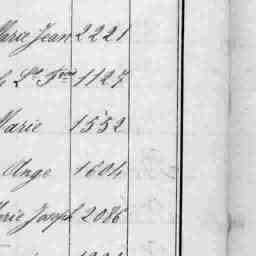 Marie Jean 2221
Lse Frse 1127
Marie 1552
Ange 1604
Marie Joseph 2086